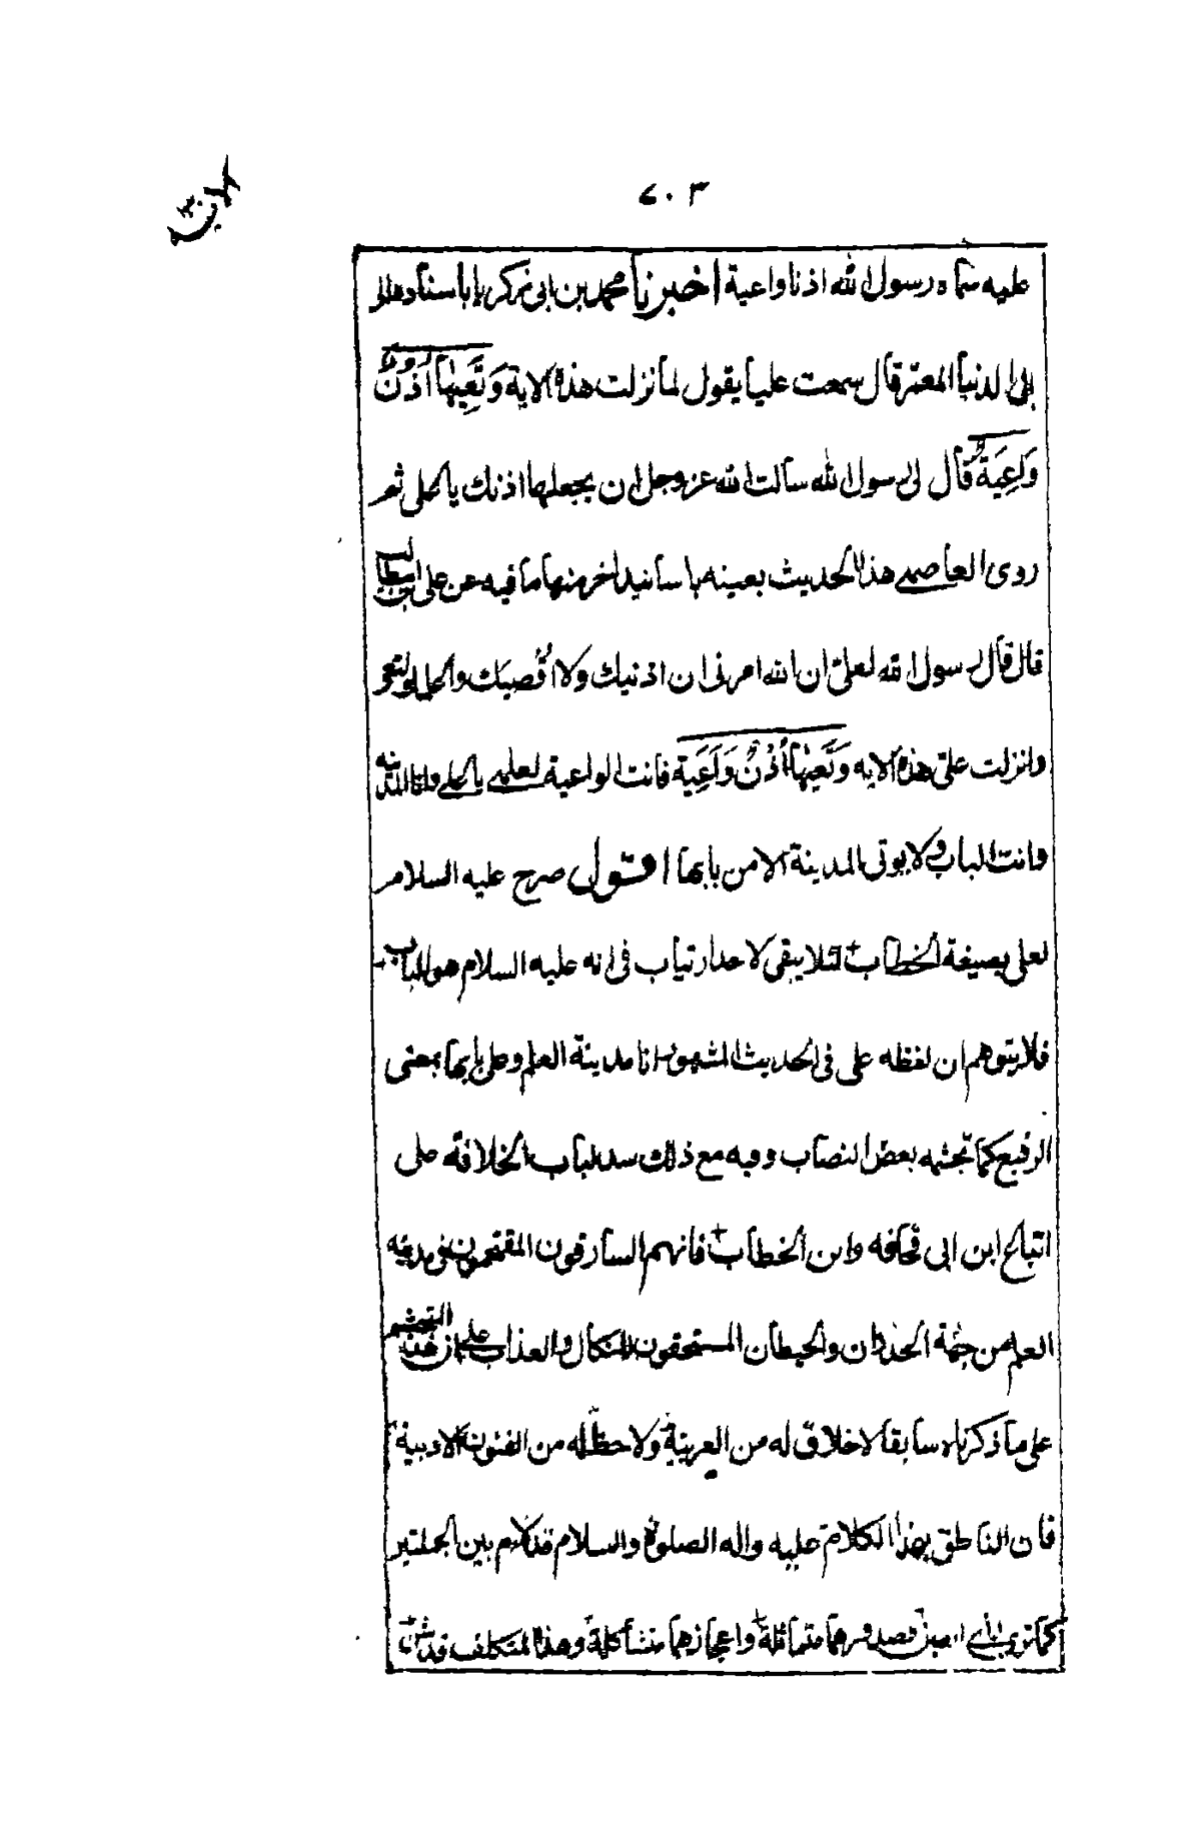 ٧٠٣
عليه سماه رسول الله اذنا واعية اخبرنا محمد بن ابي زكريا باسناده الى
ابى الدنيا المعمر قال سمعت عليا يقول لما نزلت هذه الاية وَتَعِيَهَا أُذُنٌ
وَاعِيَةٌ قال لى رسول الله سالت الله عز وجل ان يجعلها اذنك يا على ثم
روى العاصمى هذا الحديث بعينه باسانيد اخر منها ما فيه عن على بن ابيطالب
قال قال رسول الله لعلى ان الله امرنى ان ادنيك ولا اُقصيك
وانزلت على هذه الايه وَتَعِيَهَا أُذُنٌ وَاعِيَة فانت الواعية لعلمى يا على وانا المدينه
وانت الباب ولا يوتى المدينة الا من بابها اقول صرح عليه السلام
لعلى بصيغة الخطاب لئلا يبقى لاحد ارتياب فى انه عليه السلام هو الباب
فلا يتوهم ان لفظه على فى الحديث المشهور انا مدينة العلم وعلى بابها بمعنى
الرفيع كما تجشمه بعض النصاب وفيه مع ذلك سد لباب الخلافة على
اتباع ابن ابى قحافه وابن الخطاب فانهم السارقون المقتحمون فى مدينه
العلم من جهة الجدران والحيطان المستحقون للنكال والعذاب على ان هذا المتجشم
على ما ذكرناه سابقا لا خلاق له من العربية ولا حظ له من الفنون الادبية
فان الناطق بهذا الكلام عليه واله الصلوة والسلام قد لائم بين الجملتين
كما ترى متماثلة واعجازهما متشاكلة وهذا المتكلف قد